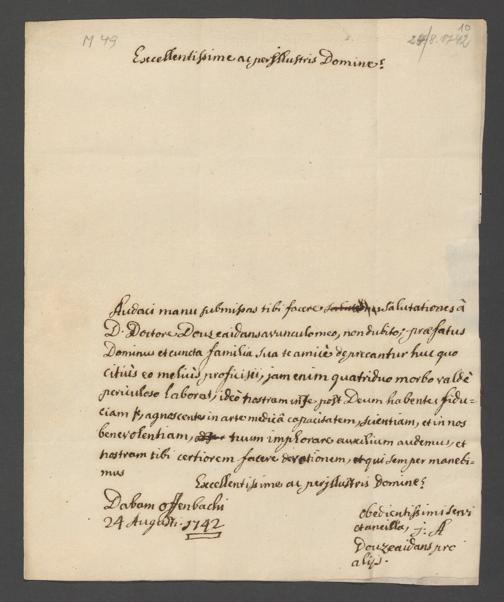 M 49
24/8. 1742
10
Excellentissime ac perjllustris Domine
Audaci manu submissas tibi facere salutationes â
D. Doctore Douzeaidans avunculo meo, non dubito; præfatus
Dominus et cuncta familia sua te amicê deprecantur huc quo
citiùs eo meliùs proficisci, jam enim quatriduo morbo valdê
periculoso laborat, ideò nostram in te post Deum habentes fidu=
ciam agnoscentes in arte medicâ capacitatem, scientiam, et in nos
benevolentiam, tuum implorare auxilium audemus, et
nostram tibi certiorem facere devotionem, et qui semper manebi=
mus
Excellentissime ac perjllustris domine
Dabam offenbachi
24 Augusti 1742
obedientissimi servi
et ancilla, j. A
Douzeaidans pro
aliis.